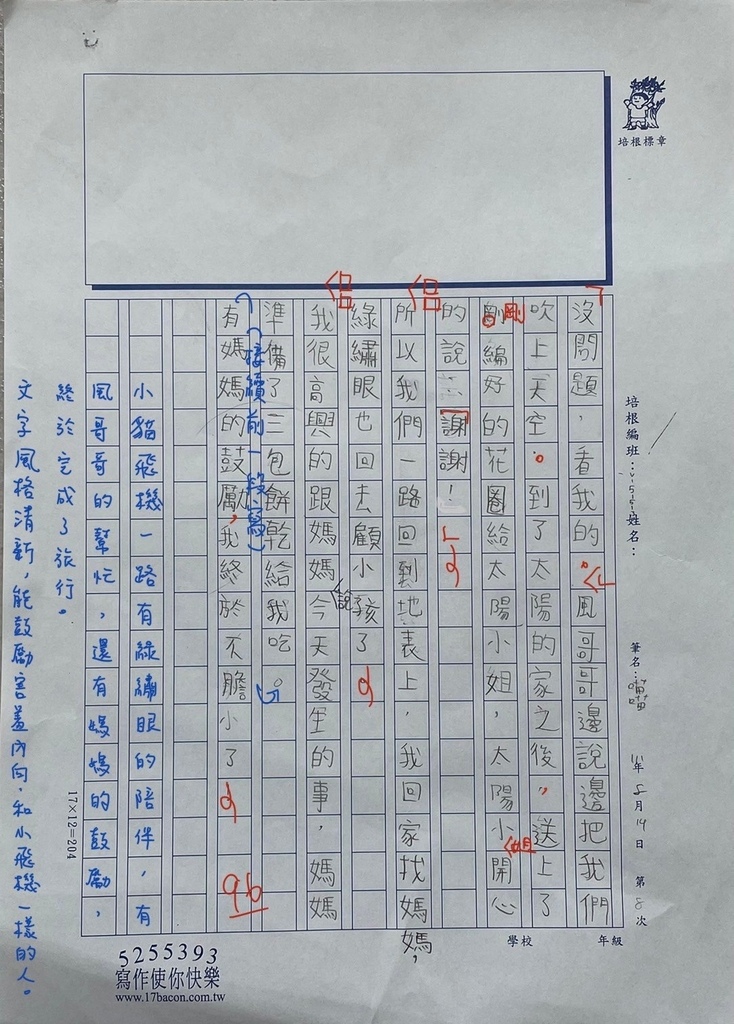 培根標章
培根編班：V-5-5-5姓名：
筆名：喵喵
年5月19日 第8次
學校
年級
沒問題，看我的。」風哥哥邊說邊把我們
吹上天空。到了太陽的家之後，送上了
剛編好的花圈給太陽小姐，太陽小姐開心
的說：「謝謝！」
所以我們一路回到地表上，我回家找媽媽，
綠繡眼也回去顧小孩了。
我很高興的跟媽媽說今天發生的事，媽媽
準備了三包餅乾給我吃。
（接續前一段寫）
有媽媽的鼓勵，我終於不膽小了。
96
小貓飛機一路有綠繡眼的陪伴，有
風哥哥的幫忙，還有媽媽的鼓勵，
終於完成了旅行。
文字風格清新，能鼓勵害羞內向，和小飛機一樣的人。
17×12=204
5255393
寫作使你快樂
www.17bacon.com.tw